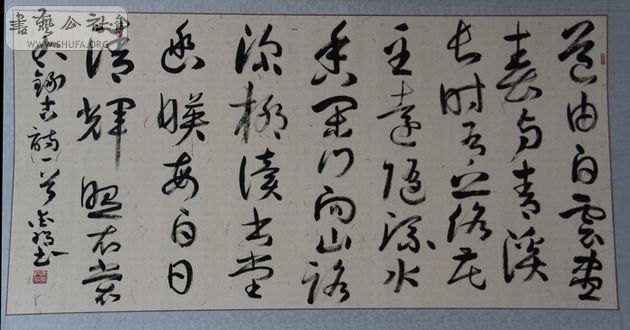 道由白雲盡
春与青溪
長時有落花
至遠隨流水
香閒門向山路
深柳讀書堂
幽暎每白日
清輝照衣裳
錄古詩一首
書藝公社
WWW.SHUFA.ORG